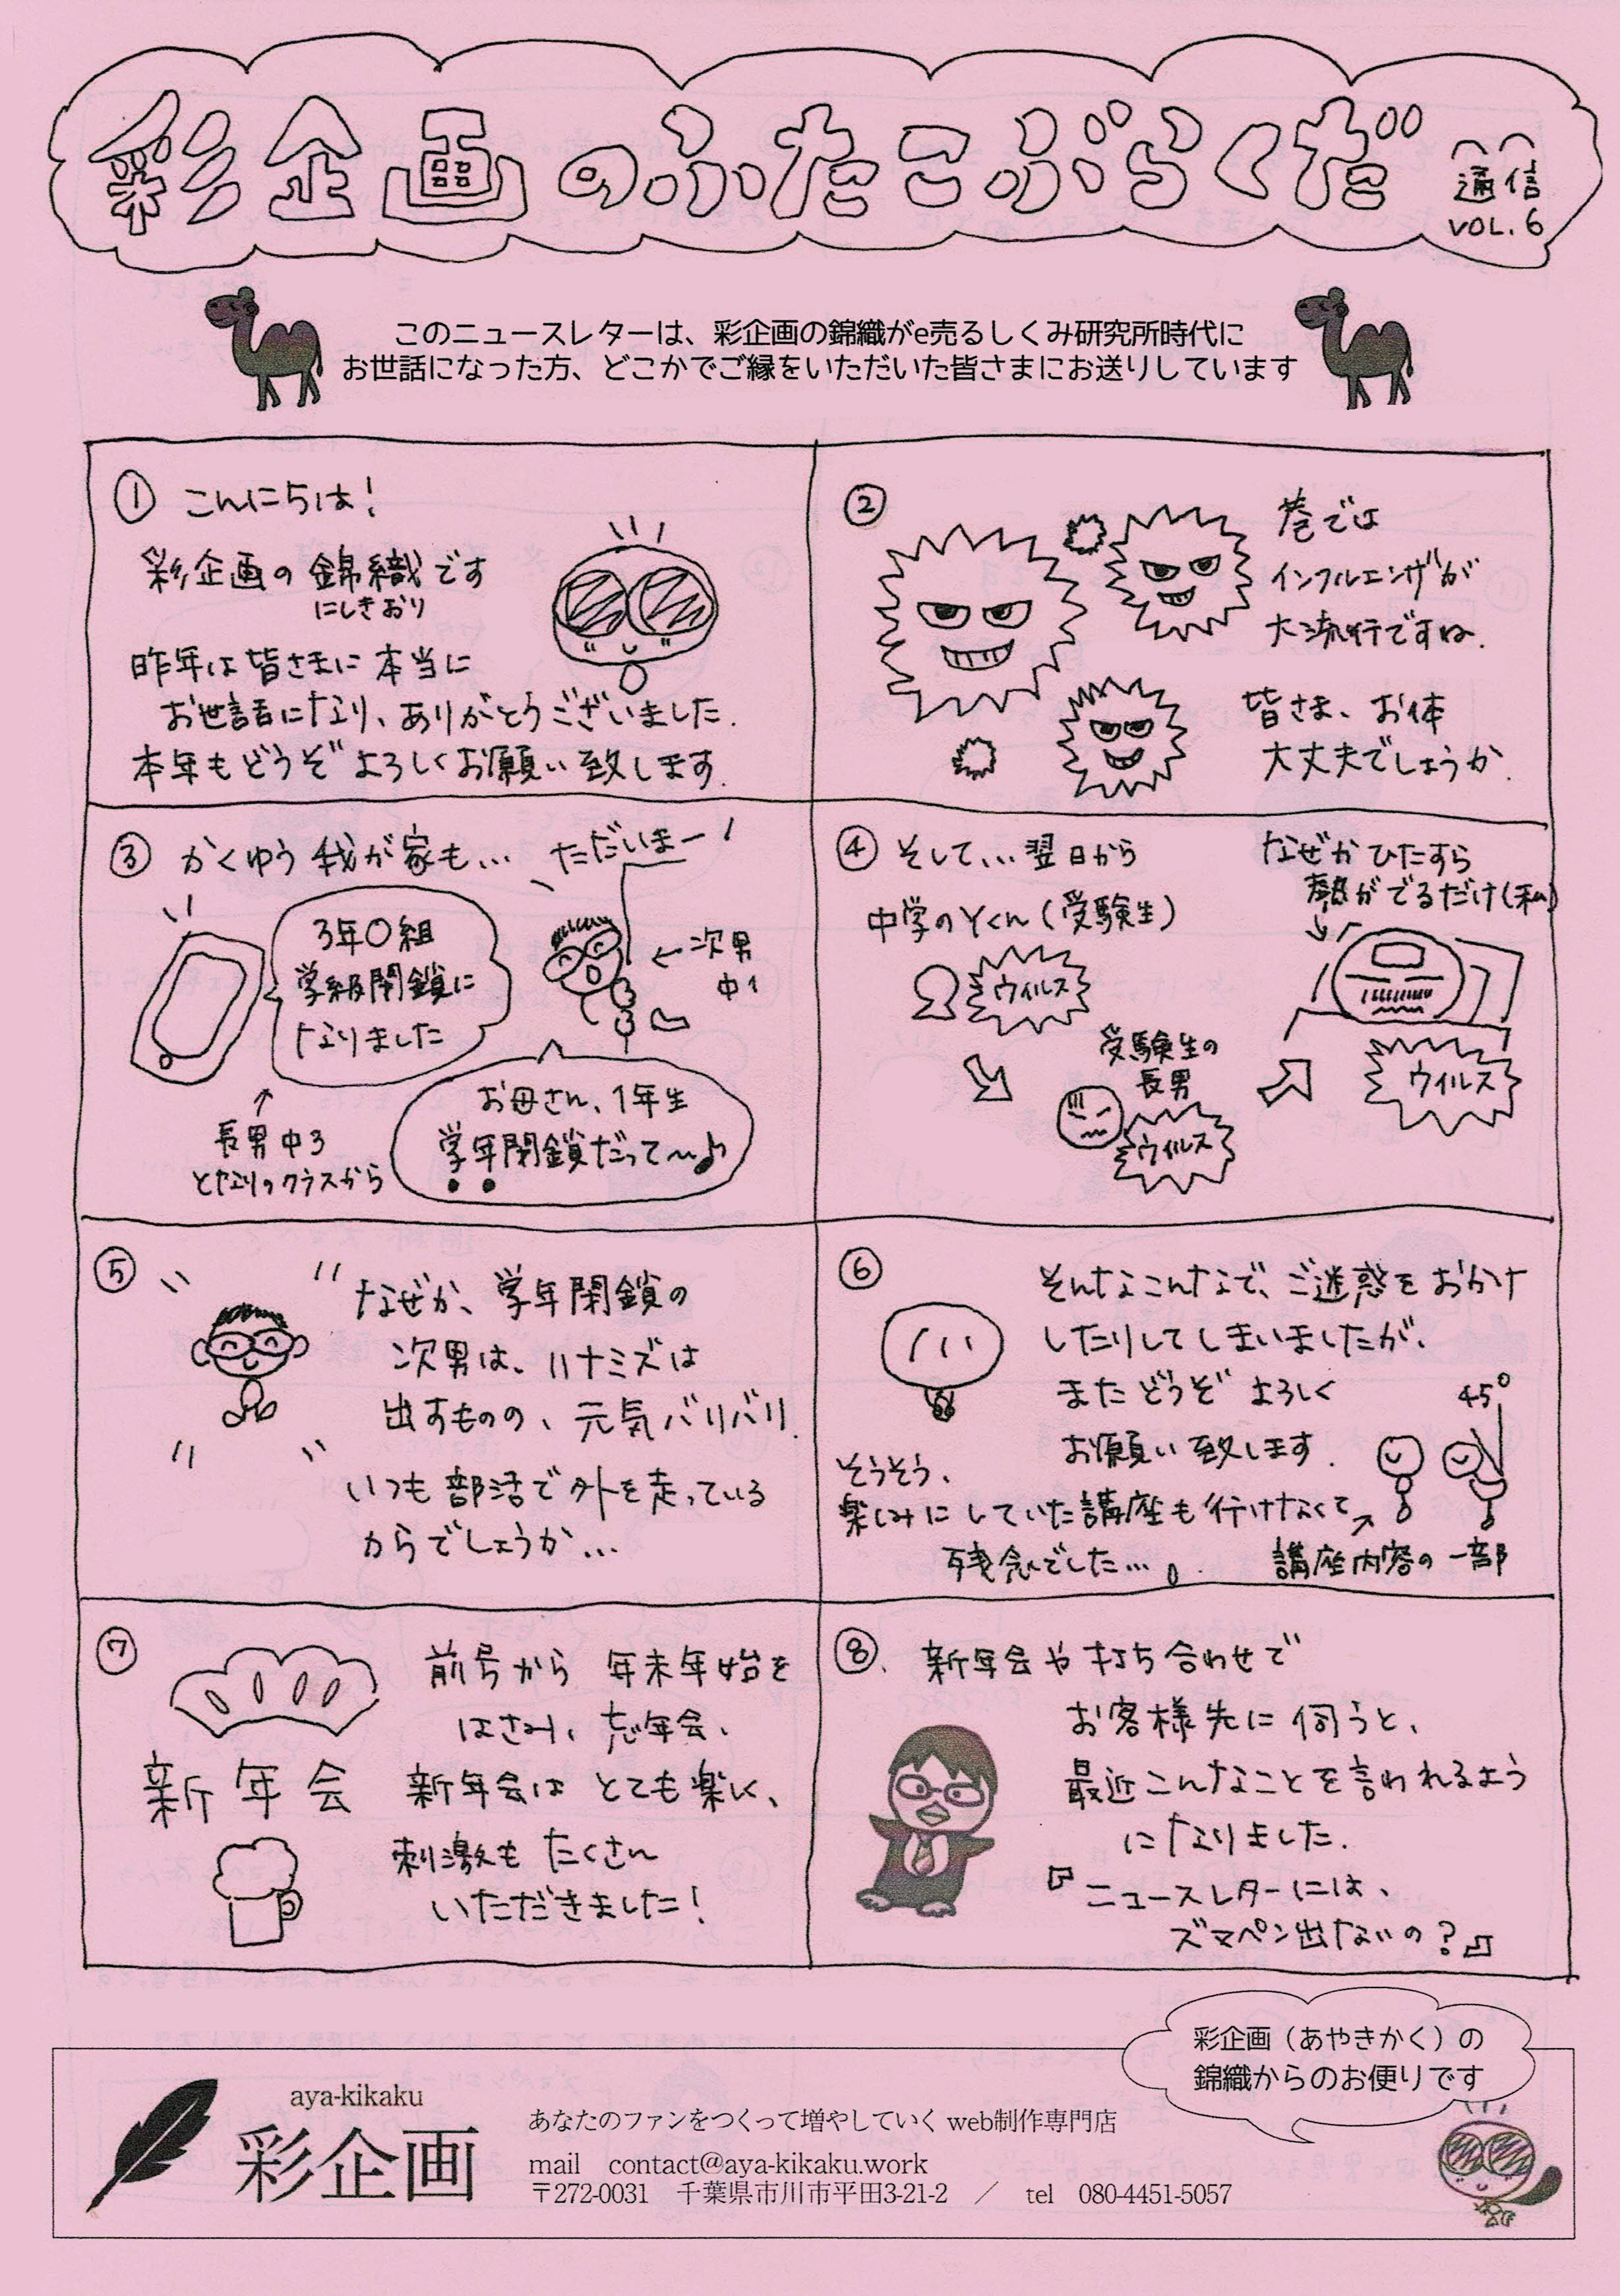 彩企画のふたこぶらくだ
通信
VOL.6
このニュースレターは、彩企画の錦織がe売るしくみ研究所時代に
お世話になった方、どこかでご縁をいただいた皆さまにお送りしています
① こんにちは!
彩企画の錦織です
にしきおり
昨年は皆さまに本当に
お世話になり、ありがとうございました.
本年もどうぞよろしくお願い致します.
②
巷では
インフルエンザが
大流行ですね.
皆さま、お体
大丈夫でしょうか.
③ かくゆう我が家も…
ただいまー!
3年〇組
学級閉鎖に
なりました
←次男
中1
↑
長男中3
となりのクラスから
お母さん、1年生
学年閉鎖だって〜♪
④ そして… 翌日から
中学のYくん(受験生)
ウイルス
受験生の
長男
ウイルス
なぜかひたすら
熱がでるだけ(私)
ウイルス
⑤
なぜか、学年閉鎖の
次男は、ハナミズは
出すものの、元気バリバリ.
いつも部活で外を走っている
からでしょうか…
⑥
そんなこんなで、ご迷惑をおかけ
したりしてしまいましたが、
またどうぞよろしく
お願い致します.
45°
そうそう、
楽しみにしていた講座も行けなくて
残念でした….
講座内容の一部
⑦
前号から年末年始を
はさみ、忘年会、
新年会はとても楽しく、
刺激もたくさん
いただきました!
新年会
⑧. 新年会や打ち合わせで
お客様先に伺うと、
最近こんなことを言われるよう
になりました.
『ニュースレターには、
ズマペン出ないの?』
彩企画（あやきかく）の
錦織からのお便りです
aya-kikaku
彩企画
あなたのファンをつくって増やしていく web制作専門店
mail contact@aya-kikaku.work
〒272-0031 千葉県市川市平田3-21-2 ／ tel 080-4451-5057